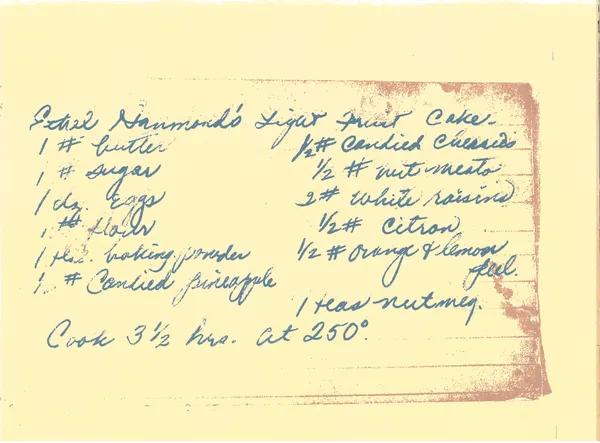 Ethel Hammond's Light Fruit Cake.
1 # butter
1 # sugar
1 dz. Eggs
1 # flour
1 teas. baking powder
1 # Candied pineapple
1/2 # Candied Cherries
1/2 # nut meats
2 # white raisins
1/2 # Citron
1/2 # orange & lemon
peel.
1 teas nutmeg.
Cook 3 1/2 hrs. at 250°.